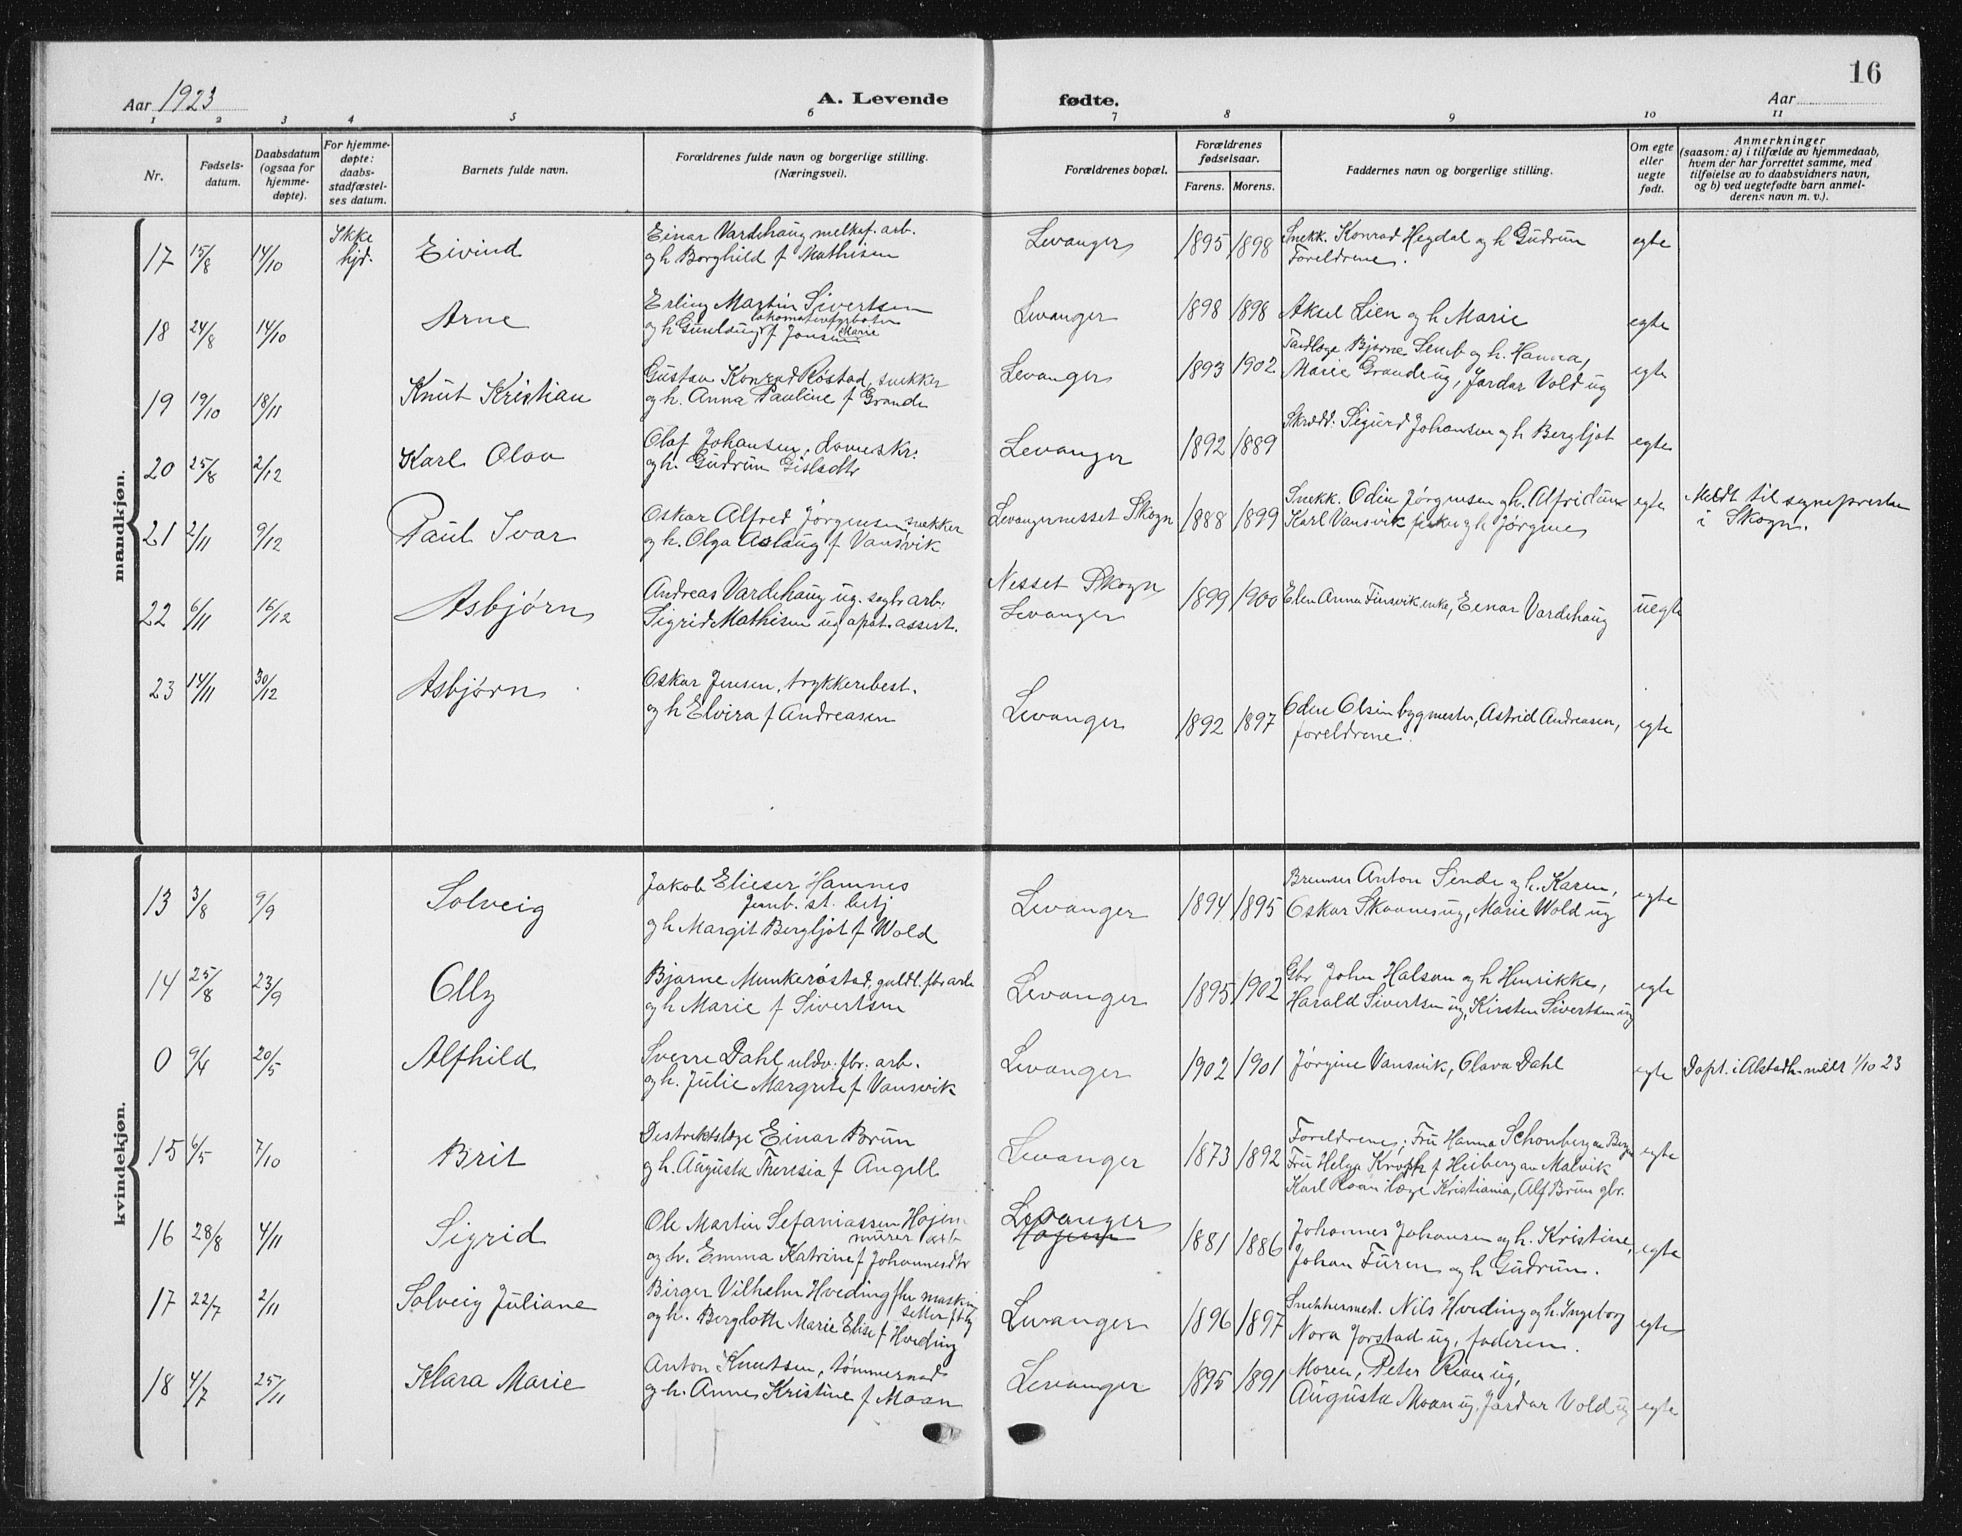 16
Aar 1923 A. Levende fødte. Aar
1 2 3 4 5 6 7 8 9 10 11
Nr.
Fødsels-
datum.
Daabsdatum
(ogsaa for
hjemme-
døpte).
For hjemme-
døpte:
daabs-
stadfæstel-
ses datum.
Barnets fulde navn.
Forældrenes fulde navn og borgerlige stilling.
(Næringsvei).
Forældrenes bopæl.
Forældrenes
fødselsaar.
Farens. Morens.
Faddernes navn og borgerlige stilling.
Om egte
eller
uegte
født.
Anmerkninger
(saasom: a) i tilfælde av hjemmedaab,
hvem der har forrettet samme, med
tilføielse av to daabsvidners navn,
og b) ved uegtefødte barn anmel-
derens navn m. v.).
mandkjøn.
17 15/8 14/10 Ikke hjd. Eivind
Einar Vardehaug melkef. arb.
og h Borghild f Mathisen
Levanger 1895 1898
Snekk. Konrad Heydal og h Gudrun
Foreldrene.
egte
18 24/8 14/10 Arne
Erling Martin Sivertsen
lokomotivfyrbøter
og h Gunlaug f Jensen Marie
Levanger 1898 1898
Aksel Lien og h Marie
egte
19 19/10 18/11 Knut Kristian
Gustav Konrad Røstad, snekker
og h. Anna Pauline f Grande
Levanger 1893 1902
Tandlæge Bjarne Semb og h. Hanna,
Marie Grande ug, Jardar Vold ug
egte
20 25/8 2/12 Karl Olav
Olaf Johansen, dameskr.
og h. Gudrun Gisladtr
Levanger 1892 1889
Skrædd. Sigurd Johansen og h Bergljot
egte
21 2/11 9/12 Paul Ivar
Oskar Alfred Jørgensen, snekker
og h. Olga Aslaug f Vansvik
Levangernesset Skogn 1888 1899
Snekk. Odin Jørgensen og h. Alfridun
Karl Vansvik fisker og h Jørgine
egte
Meldt til sognepresten
i Skogn.
22 6/11 16/12 Asbjørn
Andreas Vardehaug ug. sagbr arb.
Sigrid Mathisen ug apot. assert.
Nesset Skogn
Levanger
1899 1900
Elen Anna Finsvik enke, Einar Vardehaug
uegte
23 14/11 30/12 Asbjørn
Oskar Jensen, trykkeribest.
og h Elvira f Andreasen
Levanger 1892 1897
Odin Olsen bygmester, Astrid Andreasen,
foreldrene.
egte
kvindekjøn.
13 3/8 9/9 Solveig
Jakob Elieser Hamnes
jernb. st. betj
og h Margit Bergljot f Wold
Levanger 1894 1895
Bremser Anton Sende og h. Karen,
Oskar Skaanes ug, Marie Wold ug
egte
14 25/8 23/9 Olly
Bjarne Munkerøstad, guldl. fbr arb
og h Marie f Sivertsen
Levanger 1895 1902
Gbr John Halsan og h Henrikke,
Harald Sivertsen ug, Kirsten Sivertsen ug
egte
0 9/4 20/5 Alfhild
Sverre Dahl uldv. fbr. arb.
og h. Julie Margrete f Vansvik
Levanger 1902 1901
Jørgine Vansvik, Olava Dahl
egte
Døpt. i Alstadh. melt 1/10 23
15 6/5 7/10 Brit
Distriktslæge Einar Brun
og h. Augusta Theresia f Angell
Levanger 1873 1892
Foreldrene; Fru Hanna Schonberg av Bergen
Fru Helga Kroph f Heiberg av Malvik
Karl Roan læge Kristiania, Alf Brun gbr.
egte
16 28/8 4/11 Sigrid
Ole Martin Sefaniassen Højem
murer arb
og h. Emma Katrine f Johannesdtr
Levanger
Højem
1881 1886
Johannes Johansen og h. Kristine,
Johan Furen og h Gudrun.
egte
17 22/7 2/11 Solveig Juliane
Birger Vilhelm Hveding fhv maskin
setter
og h. Berglotte Marie Elise f Hveding
Levanger 1896 1897
Snekkermest. Nils Hveding og h. Ingeborg
Nora Jorstad ug, faderen.
egte
18 4/7 25/11 Klara Marie
Anton Knutsen, tømmermand
og h. Anne Kristine f Moan
Levanger 1895 1891
Moren, Peter Rian ug,
Augusta Moan ug. Jardar Vold ug
egte